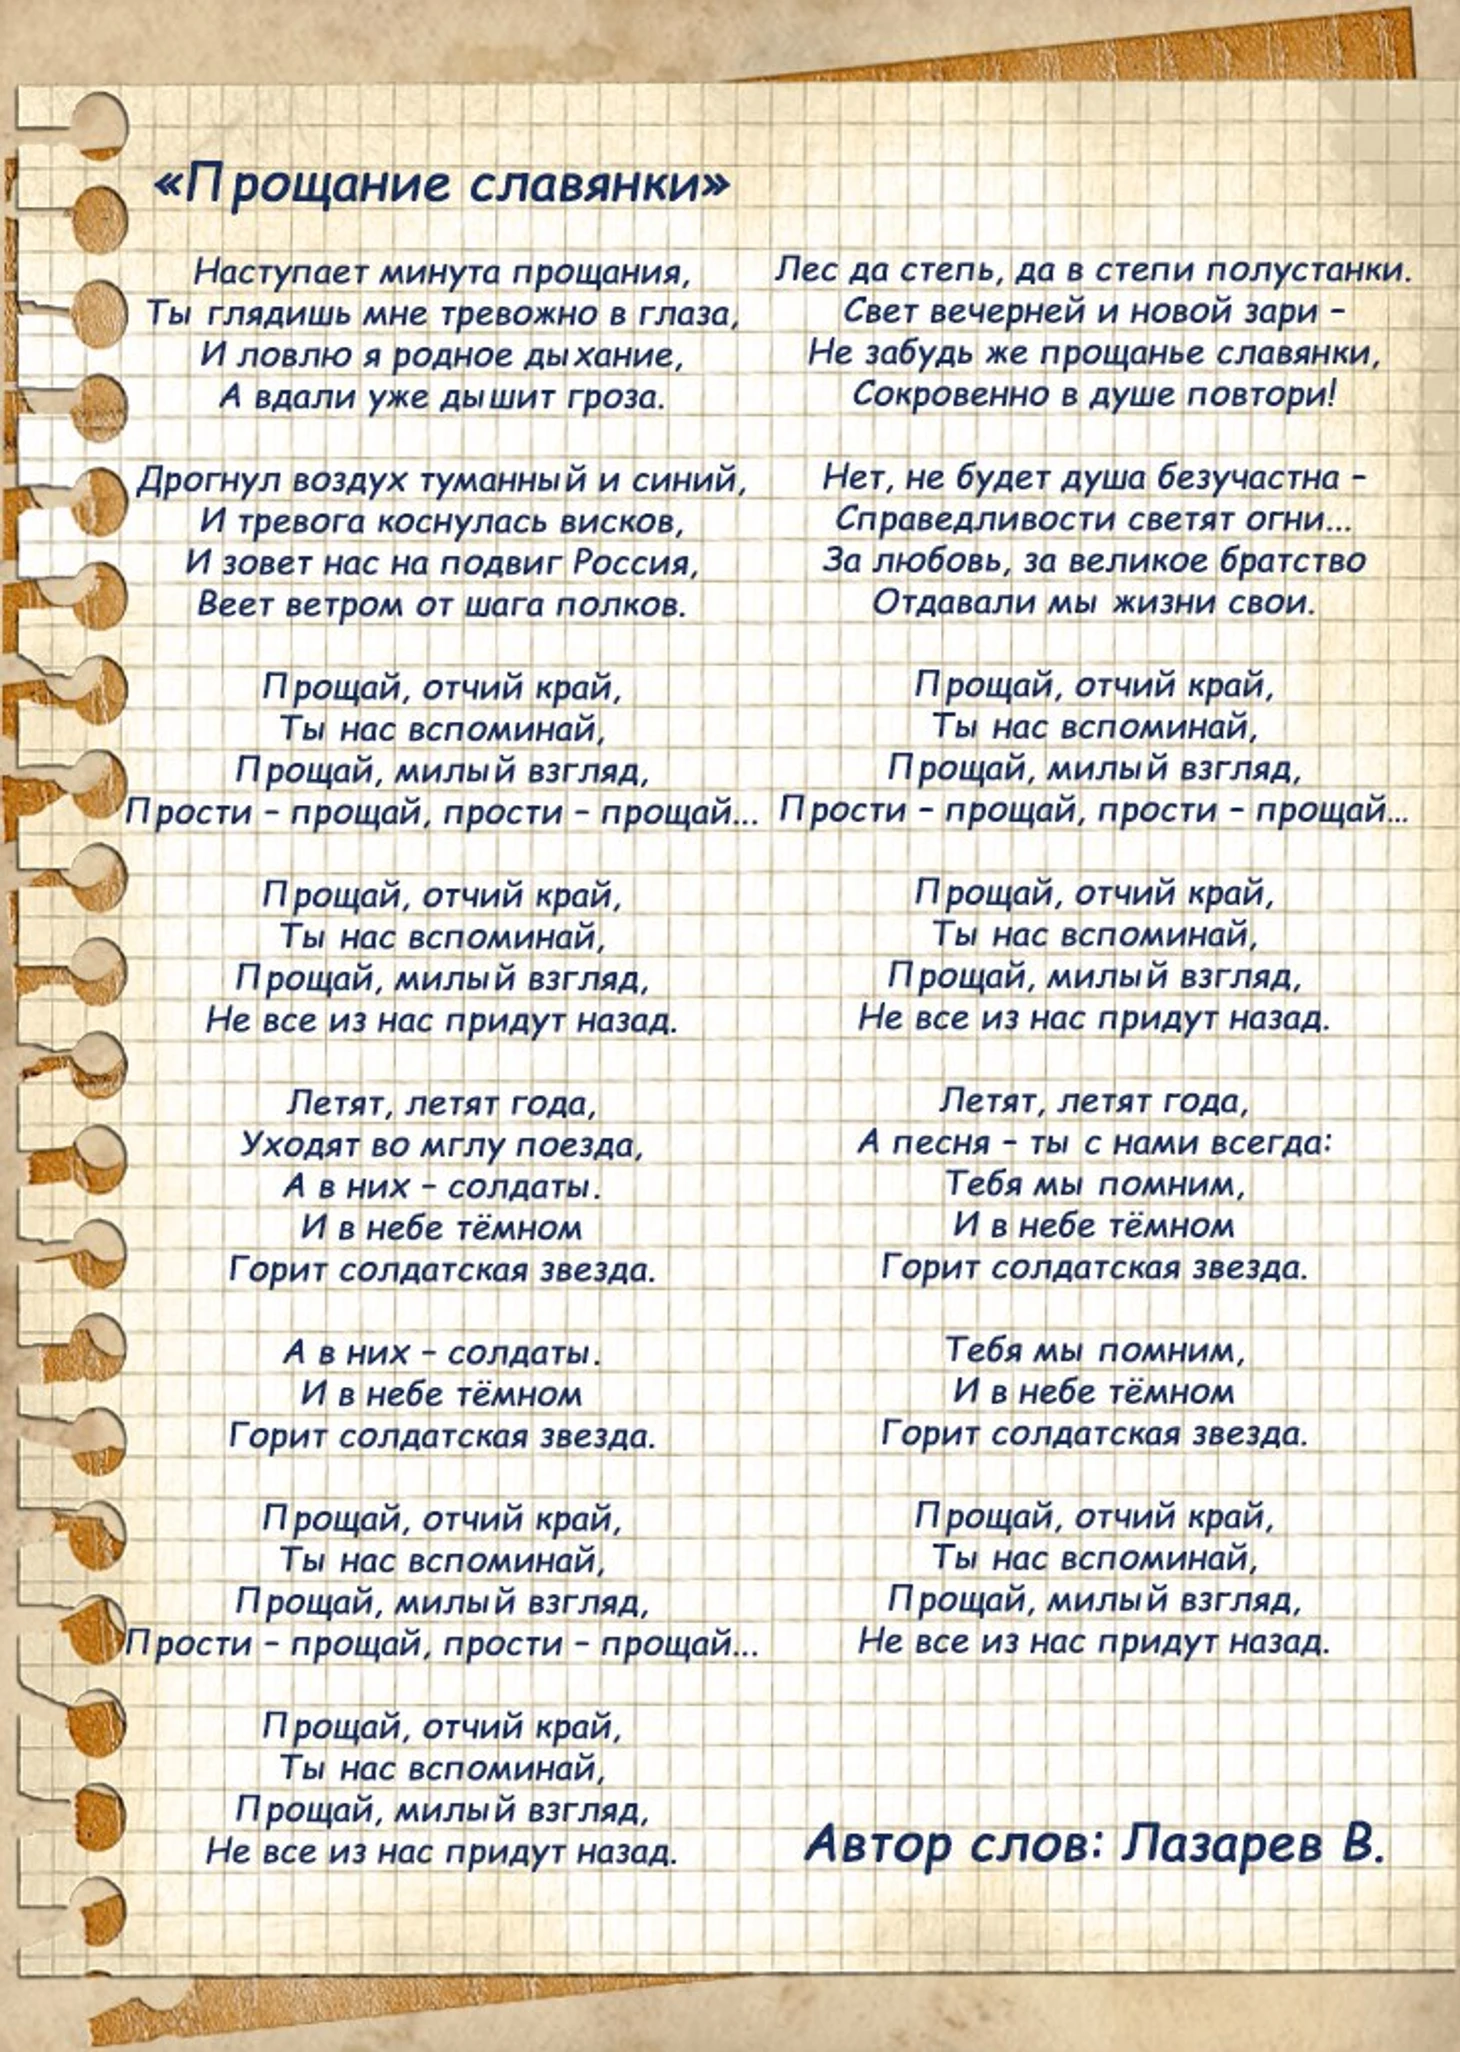 «Прощание славянки»
Наступает минута прощания,
Ты глядишь мне тревожно в глаза,
И ловлю я родное дыхание,
А вдали уже дышит гроза.
Дрогнул воздух туманный и синий,
И тревога коснулась висков,
И зовет нас на подвиг Россия,
Веет ветром от шага полков.
Прощай, отчий край,
Ты нас вспоминай,
Прощай, милый взгляд,
Прости – прощай, прости – прощай...
Прощай, отчий край,
Ты нас вспоминай,
Прощай, милый взгляд,
Не все из нас придут назад.
Летят, летят года,
Уходят во мглу поезда,
А в них – солдаты.
И в небе тёмном
Горит солдатская звезда.
А в них – солдаты.
И в небе тёмном
Горит солдатская звезда.
Прощай, отчий край,
Ты нас вспоминай,
Прощай, милый взгляд,
Прости – прощай, прости – прощай...
Прощай, отчий край,
Ты нас вспоминай,
Прощай, милый взгляд,
Не все из нас придут назад.
Лес да степь, да в степи полустанки.
Свет вечерней и новой зари –
Не забудь же прощанье славянки,
Сокровенно в душе повтори!
Нет, не будет душа безучастна –
Справедливости светят огни...
За любовь, за великое братство
Отдавали мы жизни свои.
Прощай, отчий край,
Ты нас вспоминай,
Прощай, милый взгляд,
Прости – прощай, прости – прощай...
Прощай, отчий край,
Ты нас вспоминай,
Прощай, милый взгляд,
Не все из нас придут назад.
Летят, летят года,
А песня – ты с нами всегда:
Тебя мы помним,
И в небе тёмном
Горит солдатская звезда.
Тебя мы помним,
И в небе тёмном
Горит солдатская звезда.
Прощай, отчий край,
Ты нас вспоминай,
Прощай, милый взгляд,
Не все из нас придут назад.
Автор слов: Лазарев В.